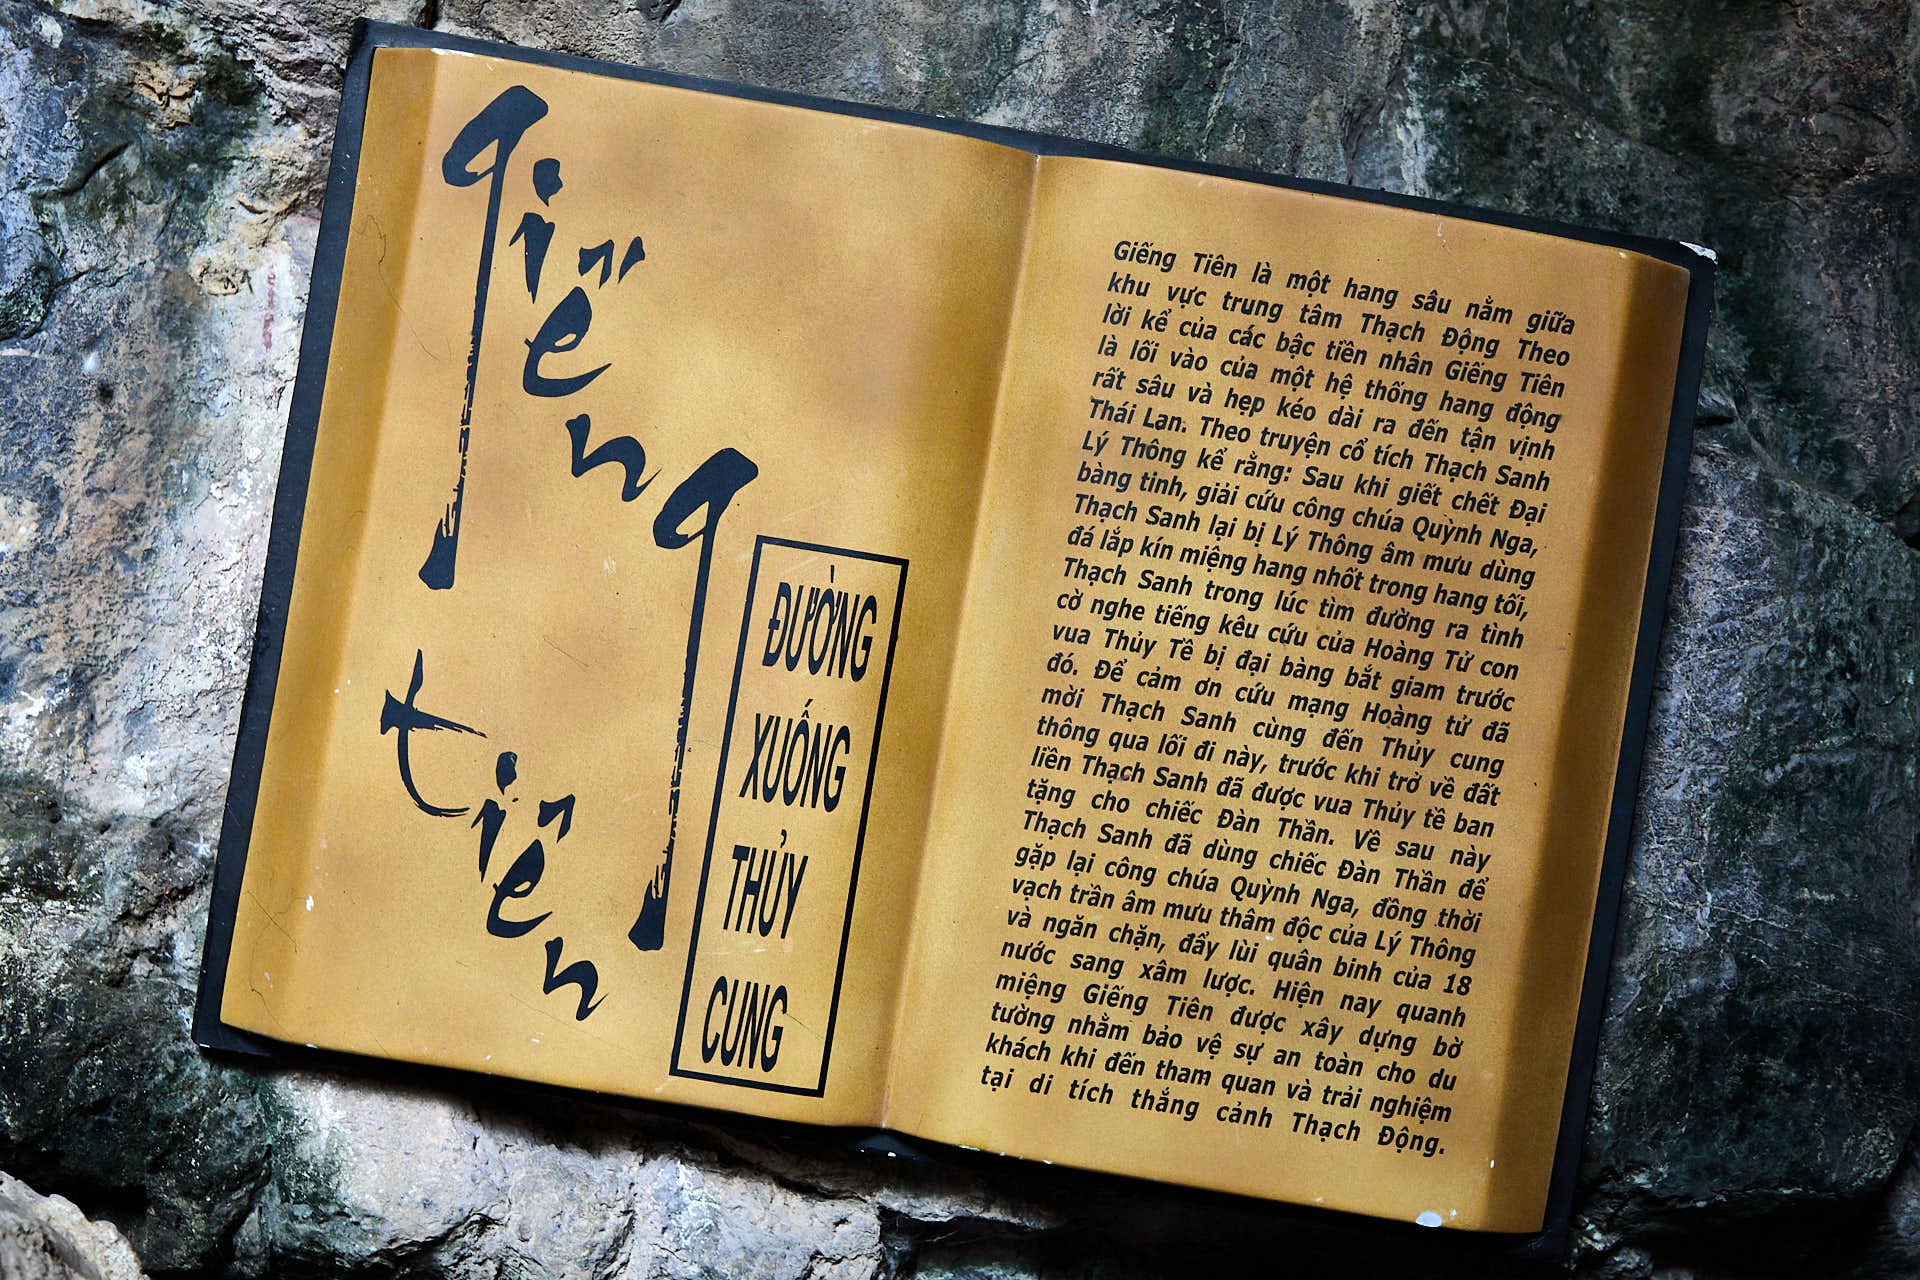 giếng
tiên
ĐƯỜNG
XUỐNG
THỦY
CUNG
Giếng Tiên là một hang sâu nằm giữa
khu vực trung tâm Thạch Động Theo
lời kể của các bậc tiền nhân Giếng Tiên
là lối vào của một hệ thống hang động
rất sâu và hẹp kéo dài ra đến tận vịnh
Thái Lan. Theo truyện cổ tích Thạch Sanh
Lý Thông kể rằng: Sau khi giết chết Đại
bàng tinh, giải cứu công chúa Quỳnh Nga,
Thạch Sanh lại bị Lý Thông âm mưu dùng
đá lắp kín miệng hang nhốt trong hang tối,
Thạch Sanh trong lúc tìm đường ra tình
cờ nghe tiếng kêu cứu của Hoàng Tử con
vua Thủy Tề bị đại bàng bắt giam trước
đó. Để cảm ơn cứu mạng Hoàng tử đã
mời Thạch Sanh cùng đến Thủy cung
thông qua lối đi này, trước khi trở về đất
liền Thạch Sanh đã được vua Thủy tề ban
tặng cho chiếc Đàn Thần. Về sau này
Thạch Sanh đã dùng chiếc Đàn Thần để
gặp lại công chúa Quỳnh Nga, đồng thời
vạch trần âm mưu thâm độc của Lý Thông
và ngăn chặn, đẩy lùi quân binh của 18
nước sang xâm lược. Hiện nay quanh
miệng Giếng Tiên được xây dựng bờ
tường nhằm bảo vệ sự an toàn cho du
khách khi đến tham quan và trải nghiệm
tại di tích thắng cảnh Thạch Động.